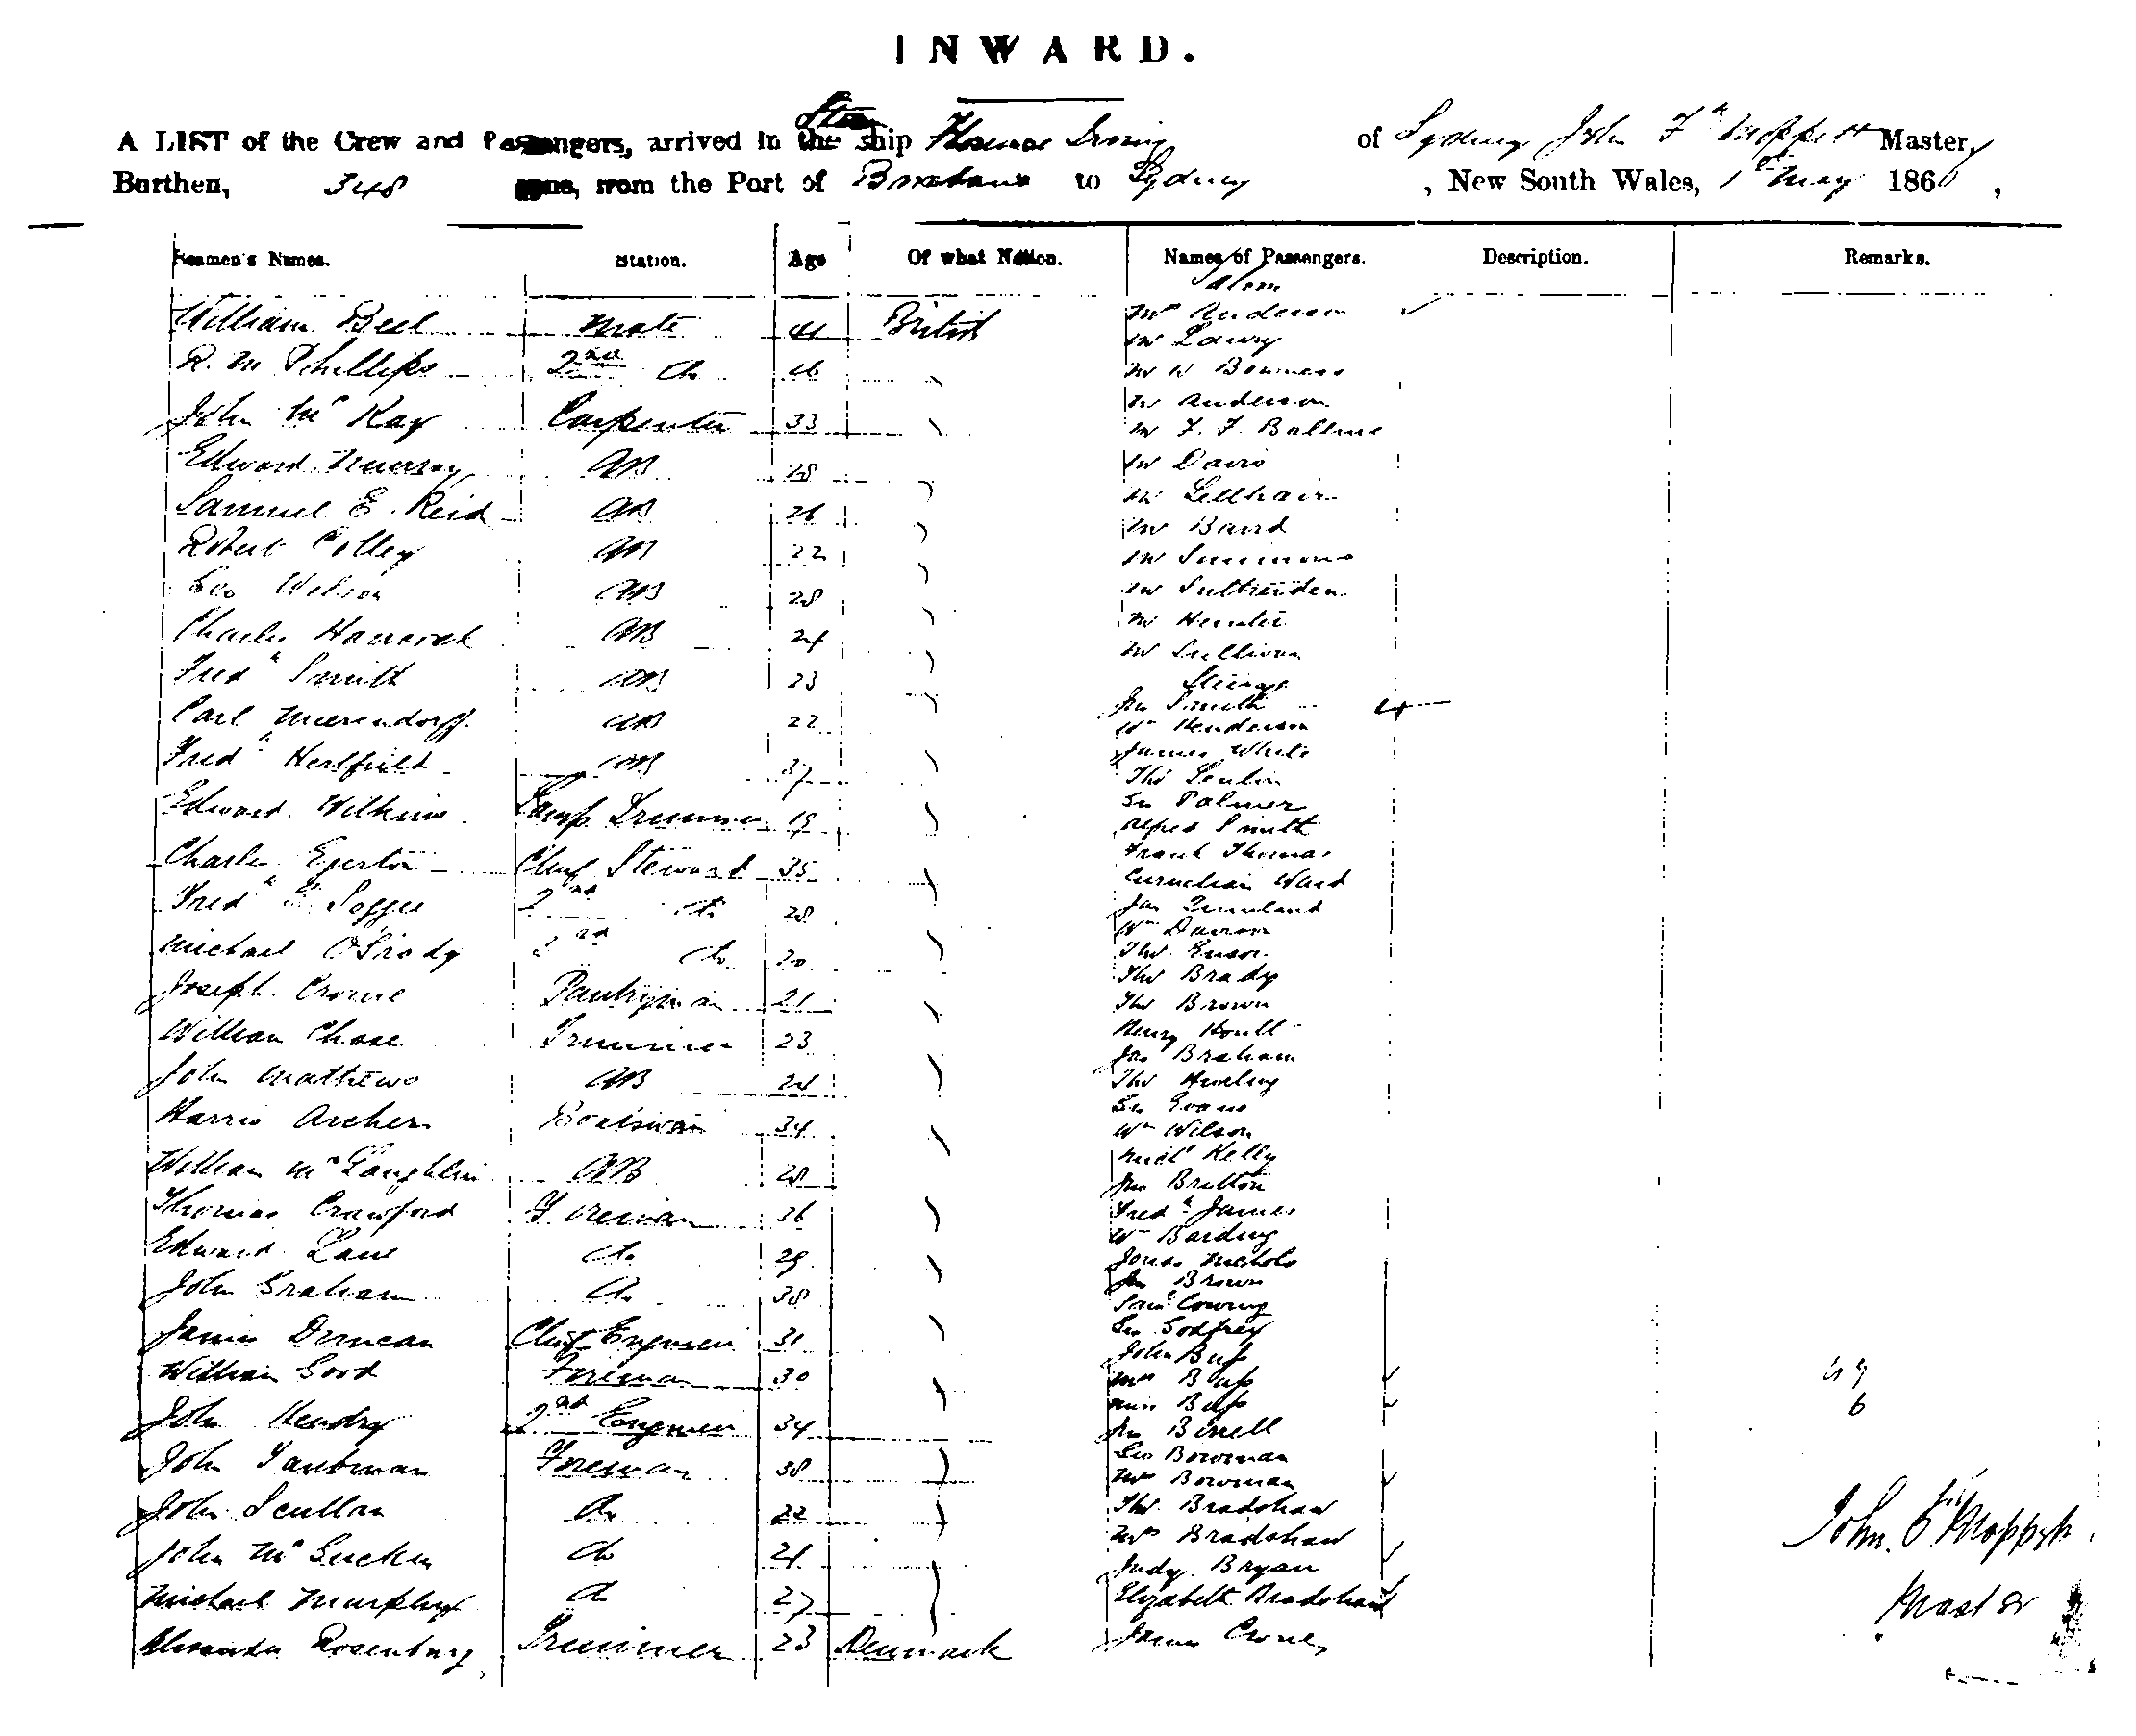 INWARD.
A LIST of the Crew and Passengers, arrived in the ship Florence Irving of Sydney John Master,
Burthen, 348 tons, from the Port of Brisbane to Sydney, New South Wales, 1st May 186 ,
Seamen's Names. Station. Age Of what Nation. Names of Passengers. Description. Remarks.
William Bell Mate 41 British
R. M Phillips 2nd do 26
John McKay Carpenter 33
Edward Murray AB 28
Samuel E. Reid AB 26
Robert Colley AB 22
Geo Wilson AB 28
Charles Hancock AB 24
Fredk Smith AB 23
Carl Mierendorff AB 22
Fredk Hertfield AB 37
Edward Wilkins Lamp Trimmer 19
Charles Egerton Chief Steward 35
Fredk 2nd do 28
Michael do 20
Joseph Crowe Pantryman 21
William Chase Trimmer 23
John Mathews AB 24
Harris Archer Boatswain 34
William McLaughlin AB 28
Thomas Crawford Fireman 36
Edward Lane do 29
John Graham do 38
James Duncan Chief Engineer 31
William Good Fireman 30
John Hendry 2nd Engineer 34
John Taubman Fireman 38
John Scullan do 22
John Mc do 21
Michael Murphy do 27
Rosenburg Trimmer 23 Denmark
Saloon
Mrs Anderson
Mr Lowry
Mr W Bowness
Mr Anderson
Mr F. F.
Mr Davis
Mr
Mr Baird
Mr Simmons
Mr
Mr Hunter
Mr Sullivan
Steerage
Jno Smith
Wm Henderson
James White
Thos
Geo Palmer
Alfred Smith
Frank Thomas
Cornelian Ward
Jas Quinland
Wm
Thos
Thos Brady
Thos Brown
Henry Hoult
Jas Braham
Thos
Geo Evans
Wm Wilson
Michl Kelly
Jno Britton
Fredk James
Wm
Jonas Nichols
Jno Brown
Saml
Geo Godfrey
John Buss
Mrs Buss
Miss Buss
Jno Birrell
Geo Bowman
Mrs Bowman
Thos Bradshaw
Mrs Bradshaw
Judy Bryan
Elizabeth Bradshaw
James
6
John
Master